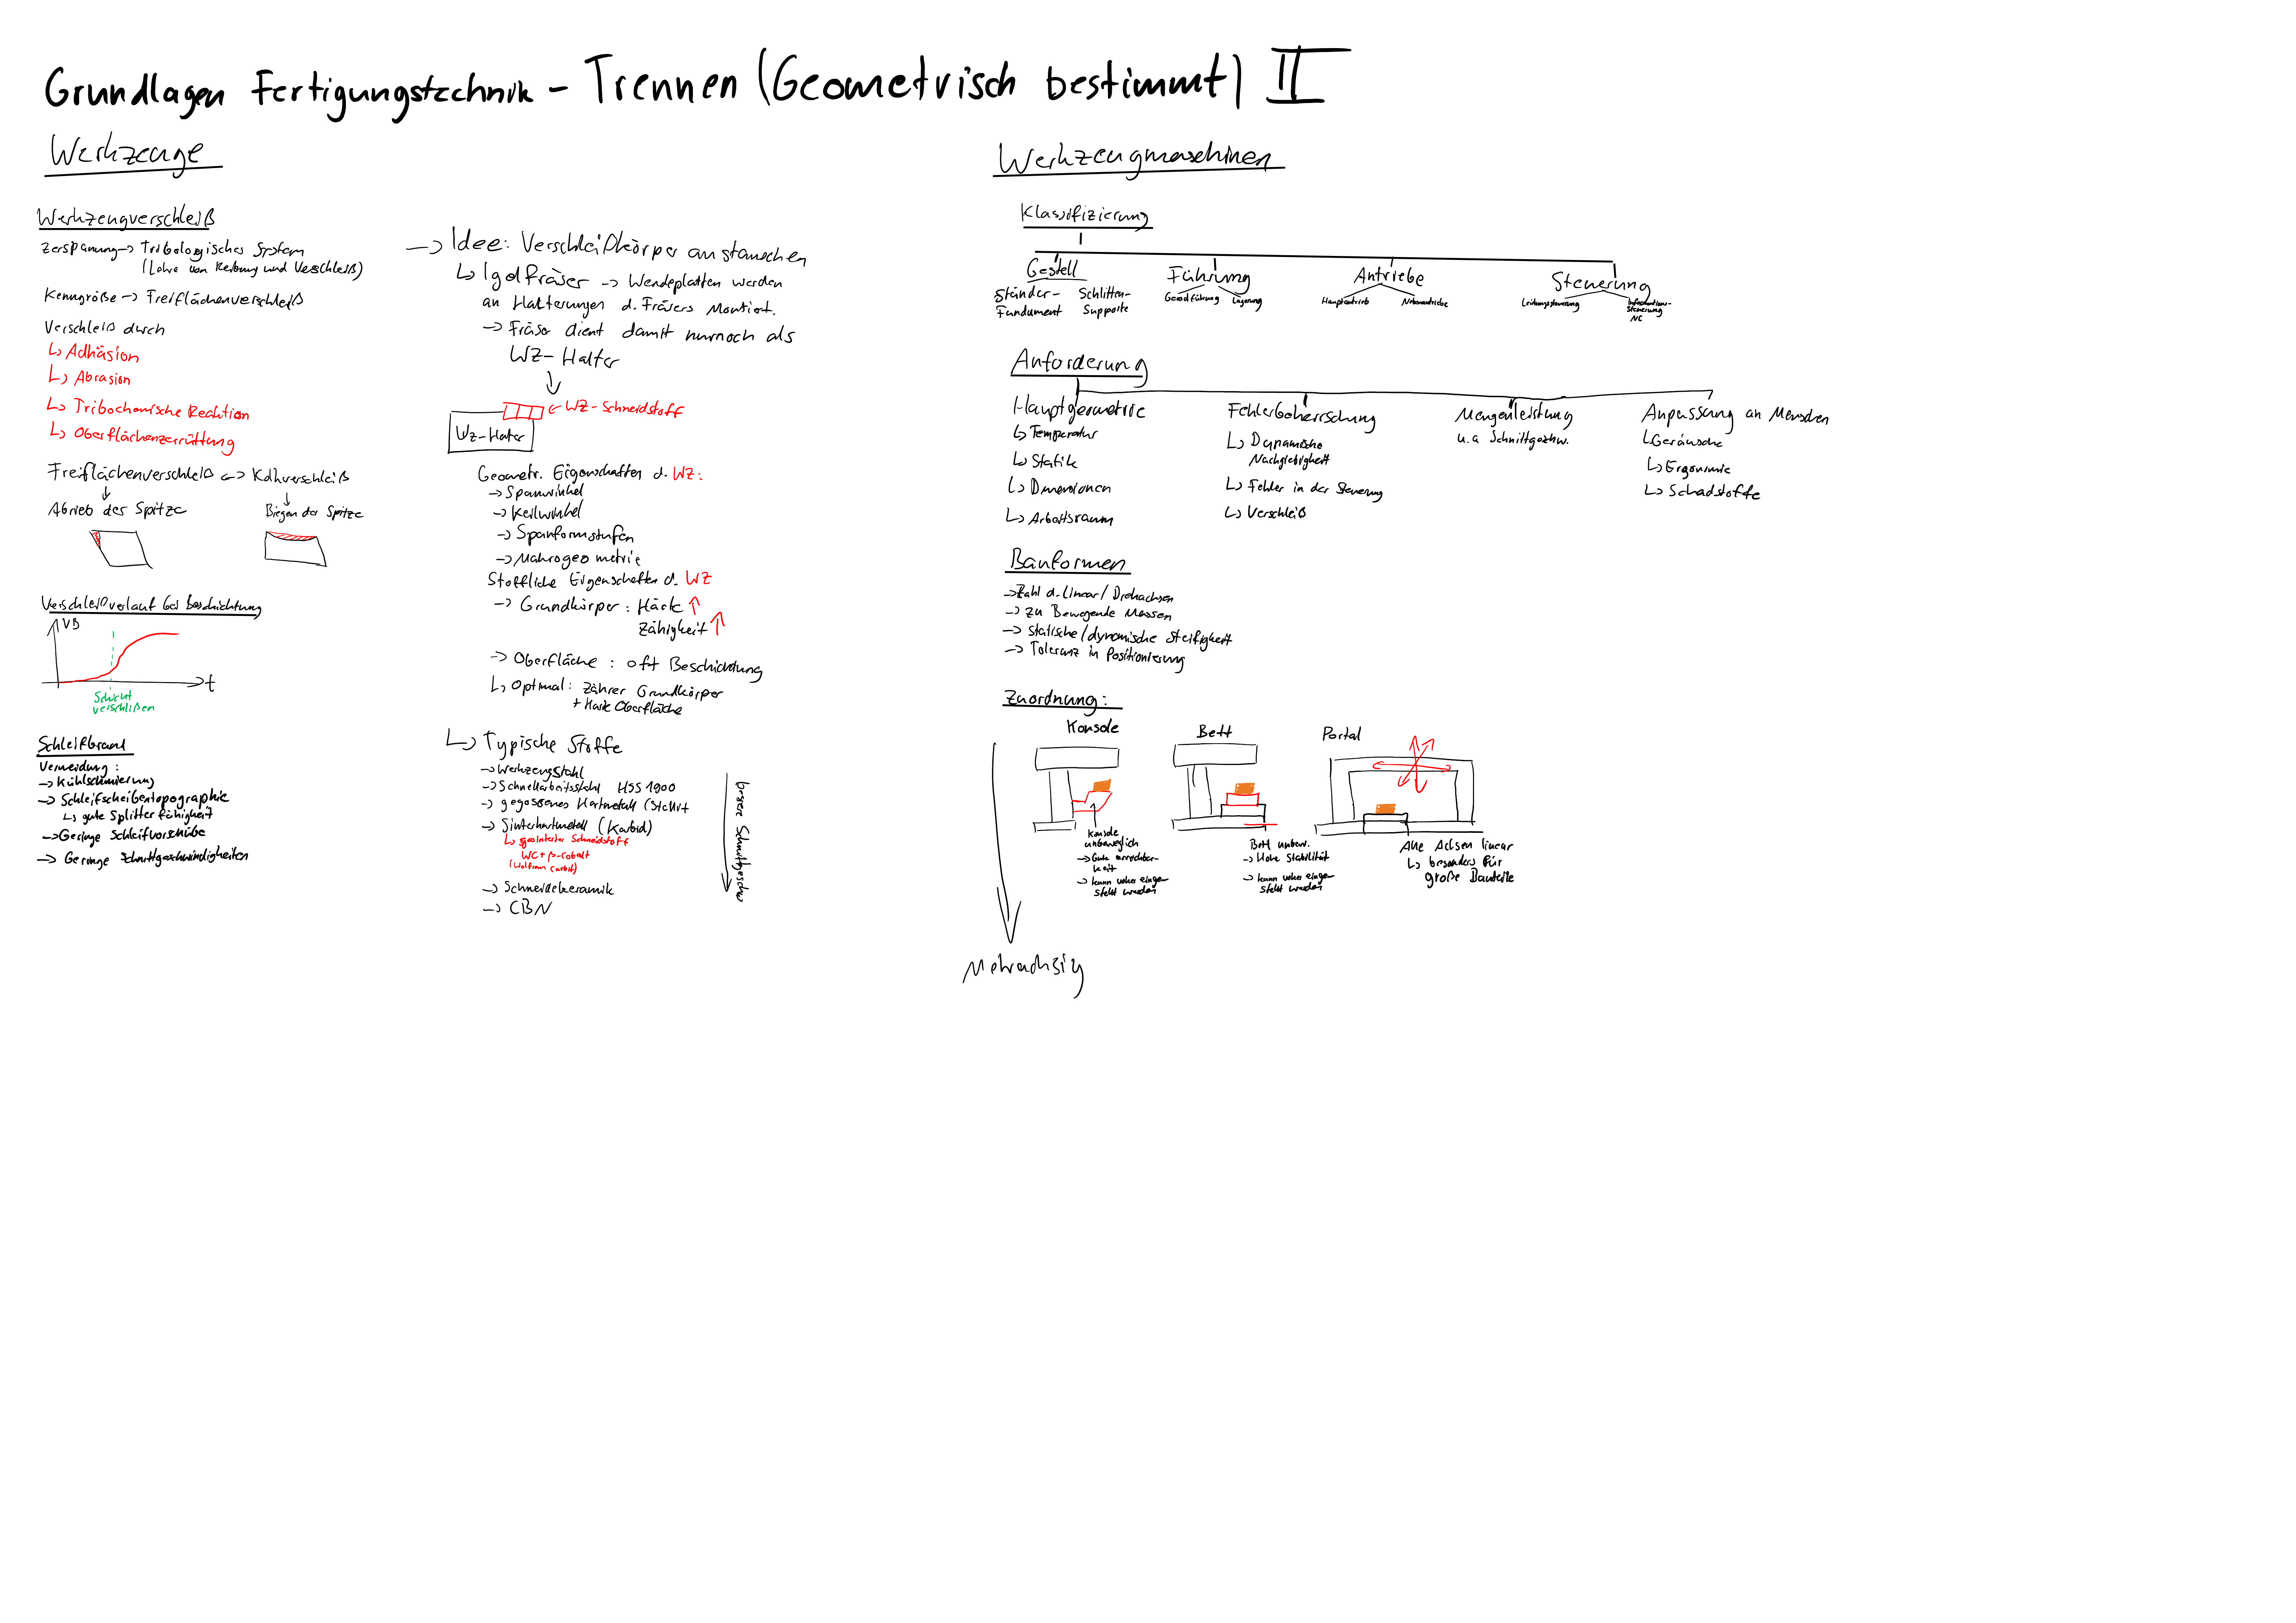 Grundlagen Fertigungstechnik - Trennen (Geometrisch bestimmt) II
Werkzeuge
Werkzeugverschleiß
Zerspanung -> Tribologisches System
(Lehre von Reibung und Verschleiß)
Kenngröße -> Freiflächenverschleiß
Verschleiß durch
↳ Adhäsion
↳ Abrasion
↳ Tribochemische Reaktion
↳ Oberflächenzerrüttung
Freiflächenverschleiß <-> Kolkverschleiß
Abrieb der Spitze
Biegen der Spitze
Verschleißverlauf bei Beschichtung
VB
t
Schicht
verschlißen
Schleifbrand
Vermeidung:
-> Kühlschmierung
-> Schleifscheibentopographie
↳ gute Splitterfähigkeit
-> Geringe Schleifvorschübe
-> Geringe Schnittgeschwindigkeiten
-> Idee: Verschleißkörper austauschen
↳ Igelfräser -> Wendeplatten werden
an Halterungen d. Fräsers Montiert.
-> Fräser dient damit nurnoch als
WZ-Halter
<- WZ-Schneidstoff
WZ-Halter
Geometr. Eigenschaften d. WZ:
-> Spanwinkel
-> Keilwinkel
-> Spanformstufen
-> Makrogeometrie
Stoffliche Eigenschaften d. WZ
-> Grundkörper: Härte ↑
Zähigkeit ↑
-> Oberfläche: oft Beschichtung
↳ Optimal: Zäher Grundkörper
+ Harte Oberfläche
↳ Typische Stoffe
-> Werkzeugstahl
-> Schnellarbeitsstahl HSS 1900
-> gegossenes Hartmetall (Stellit
-> Sinterhartmetall (Karbid)
↳ gesinterter Schneidstoff
WC + β-cobalt
(Wolfram Carbit)
-> Schneidekeramik
-> CBN
bessere Schnittgeschw
Werkzeugmaschinen
Klassifizierung
Gestell
Ständer-
Fundament
Schlitten-
Supporte
Führung
Geradführung Lagerung
Antriebe
Hauptantrieb Nebenantriebe
Steuerung
Leistungssteuerung
Informations-
steuerung
NC
Anforderung
Hauptgeometrie
↳ Temperatur
↳ Statik
↳ Dimensionen
↳ Arbeitsraum
Fehlerbeherrschung
↳ Dynamische
Nachgiebigkeit
↳ Fehler in der Steuerung
↳ Verschleiß
Mengenleistung
u.a Schnittgeschw.
Anpassung an Menschen
↳ Geräusche
↳ Ergonomie
↳ Schadstoffe
Bauformen
-> Zahl d. linear/Drehachsen
-> zu Bewegende Massen
-> statische/dynamische Steifigkeit
-> Toleranz in Positionierung
Zuordnung:
Konsole
Konsole
unbeweglich
-> Gute erreichbar-
keit
-> kann voher einge-
stellt werden
Bett
Bett unbew.
-> Hohe Stabilität
-> kann voher einge-
stellt werden
Portal
Alle Achsen linear
↳ besonders für
große Bauteile
Mehrachsig